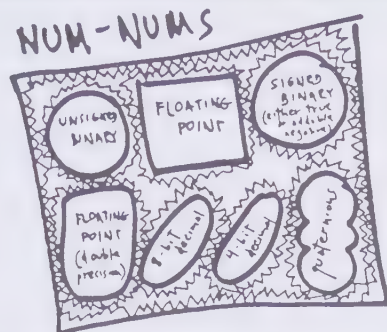 NUM-NUMS
UNSIGNED
BINARY
FLOATING
POINT
SIGNED
BINARY
(either true
or additive
negative)
FLOATING
POINT
(double
precision)
8-bit
decimal
4-bit
decimal
quaternions